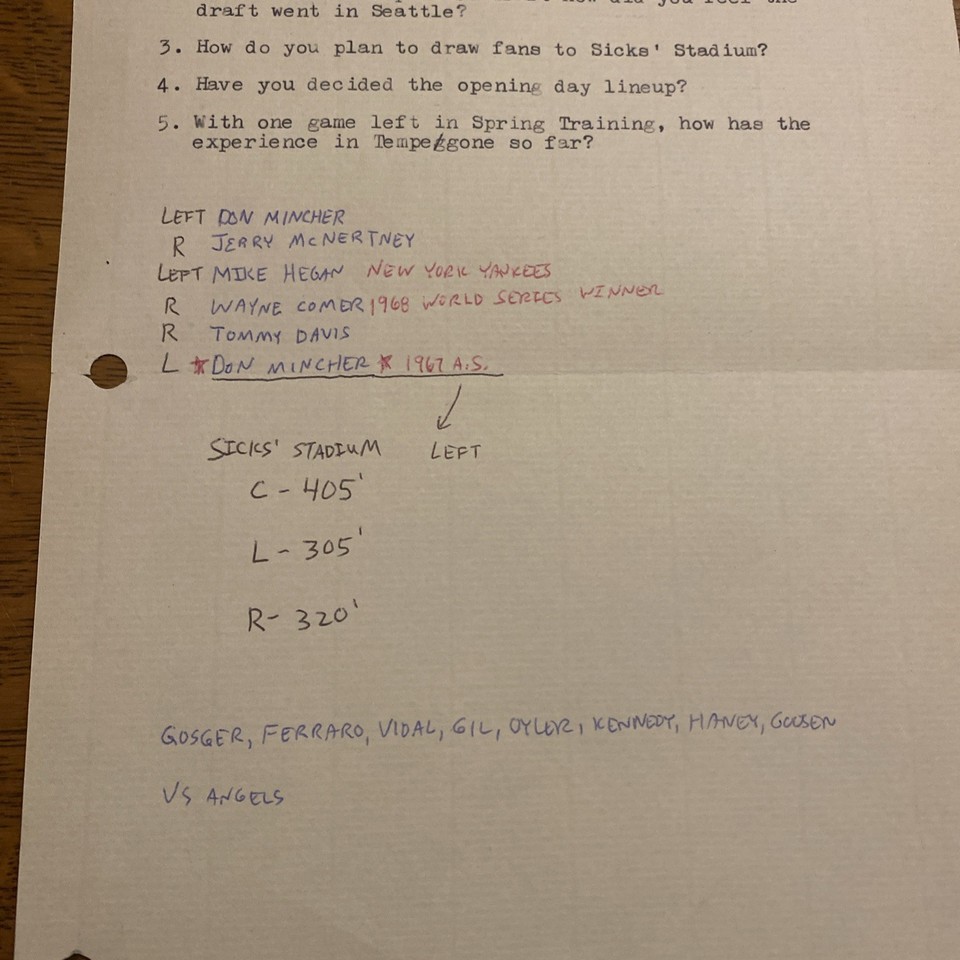 draft went in Seattle?
3. How do you plan to draw fans to Sicks' Stadium?
4. Have you decided the opening day lineup?
5. With one game left in Spring Training, how has the
experience in Tempe gone so far?
LEFT DON MINCHER
R JERRY McNERTNEY
LEFT MIKE HEGAN NEW YORK YANKEES
R WAYNE COMER 1968 WORLD SERIES WINNER
R TOMMY DAVIS
L ★DON MINCHER★ 1967 A.S.
SICKS' STADIUM LEFT
C - 405'
L - 305'
R- 320'
GOSGER, FERRARO, VIDAL, GIL, OYLER, KENNEDY, HANEY, GOOSEN
VS ANGELS